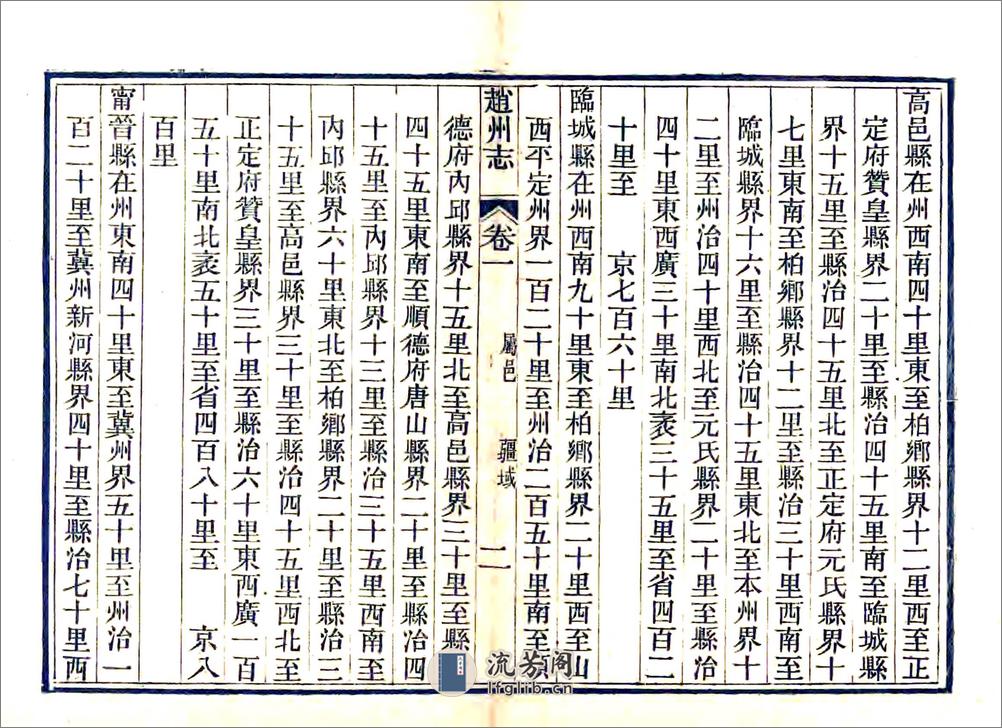 高邑縣在州西南四十里東至柏鄉縣界十二里西至正
定府贊皇縣界二十里至縣治四十五里南至臨城縣
界十五里至縣治四十五里北至正定府元氏縣界十
七里東南至柏鄉縣界十二里至縣治三十里西南至
臨城縣界十六里至縣治四十五里東北至本州界十
二里至州治四十里西北至元氏縣界二十里至縣治
四十里東西廣三十里南北袤三十五里至省四百二
十里至 京七百六十里
臨城縣在州西南九十里東至柏鄉縣界二十里西至山
西平定州界一百二十里至州治二百五十里南至順
趙州志 卷一 屬邑 疆域 二
德府內邱縣界十五里北至高邑縣界三十里至縣
四十五里東南至順德府唐山縣界二十里至縣治四
十五里至內邱縣界十三里至縣治三十五里西南至
內邱縣界六十里東北至柏鄉縣界二十里至縣治三
十五里至高邑縣界三十里至縣治四十五里西北至
正定府贊皇縣界三十里至縣治六十里東西廣一百
五十里南北袤五十里至省四百八十里至 京八
百里
甯晉縣在州東南四十里東至冀州界五十里至州治一
百二十里至冀州新河縣界四十里至縣治七十里西
流芳阁
lfglib.cn